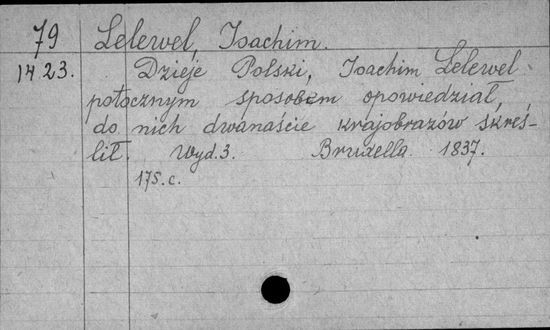 79 Lelewel, Joachim.
1423. Dzieje Polski, Joachim Lelewel
potocznym sposobem opowiedział,
do nich dwanaście krajobrazów skreś-
lił. Wyd. 3. Bruxella 1837.
175. c.